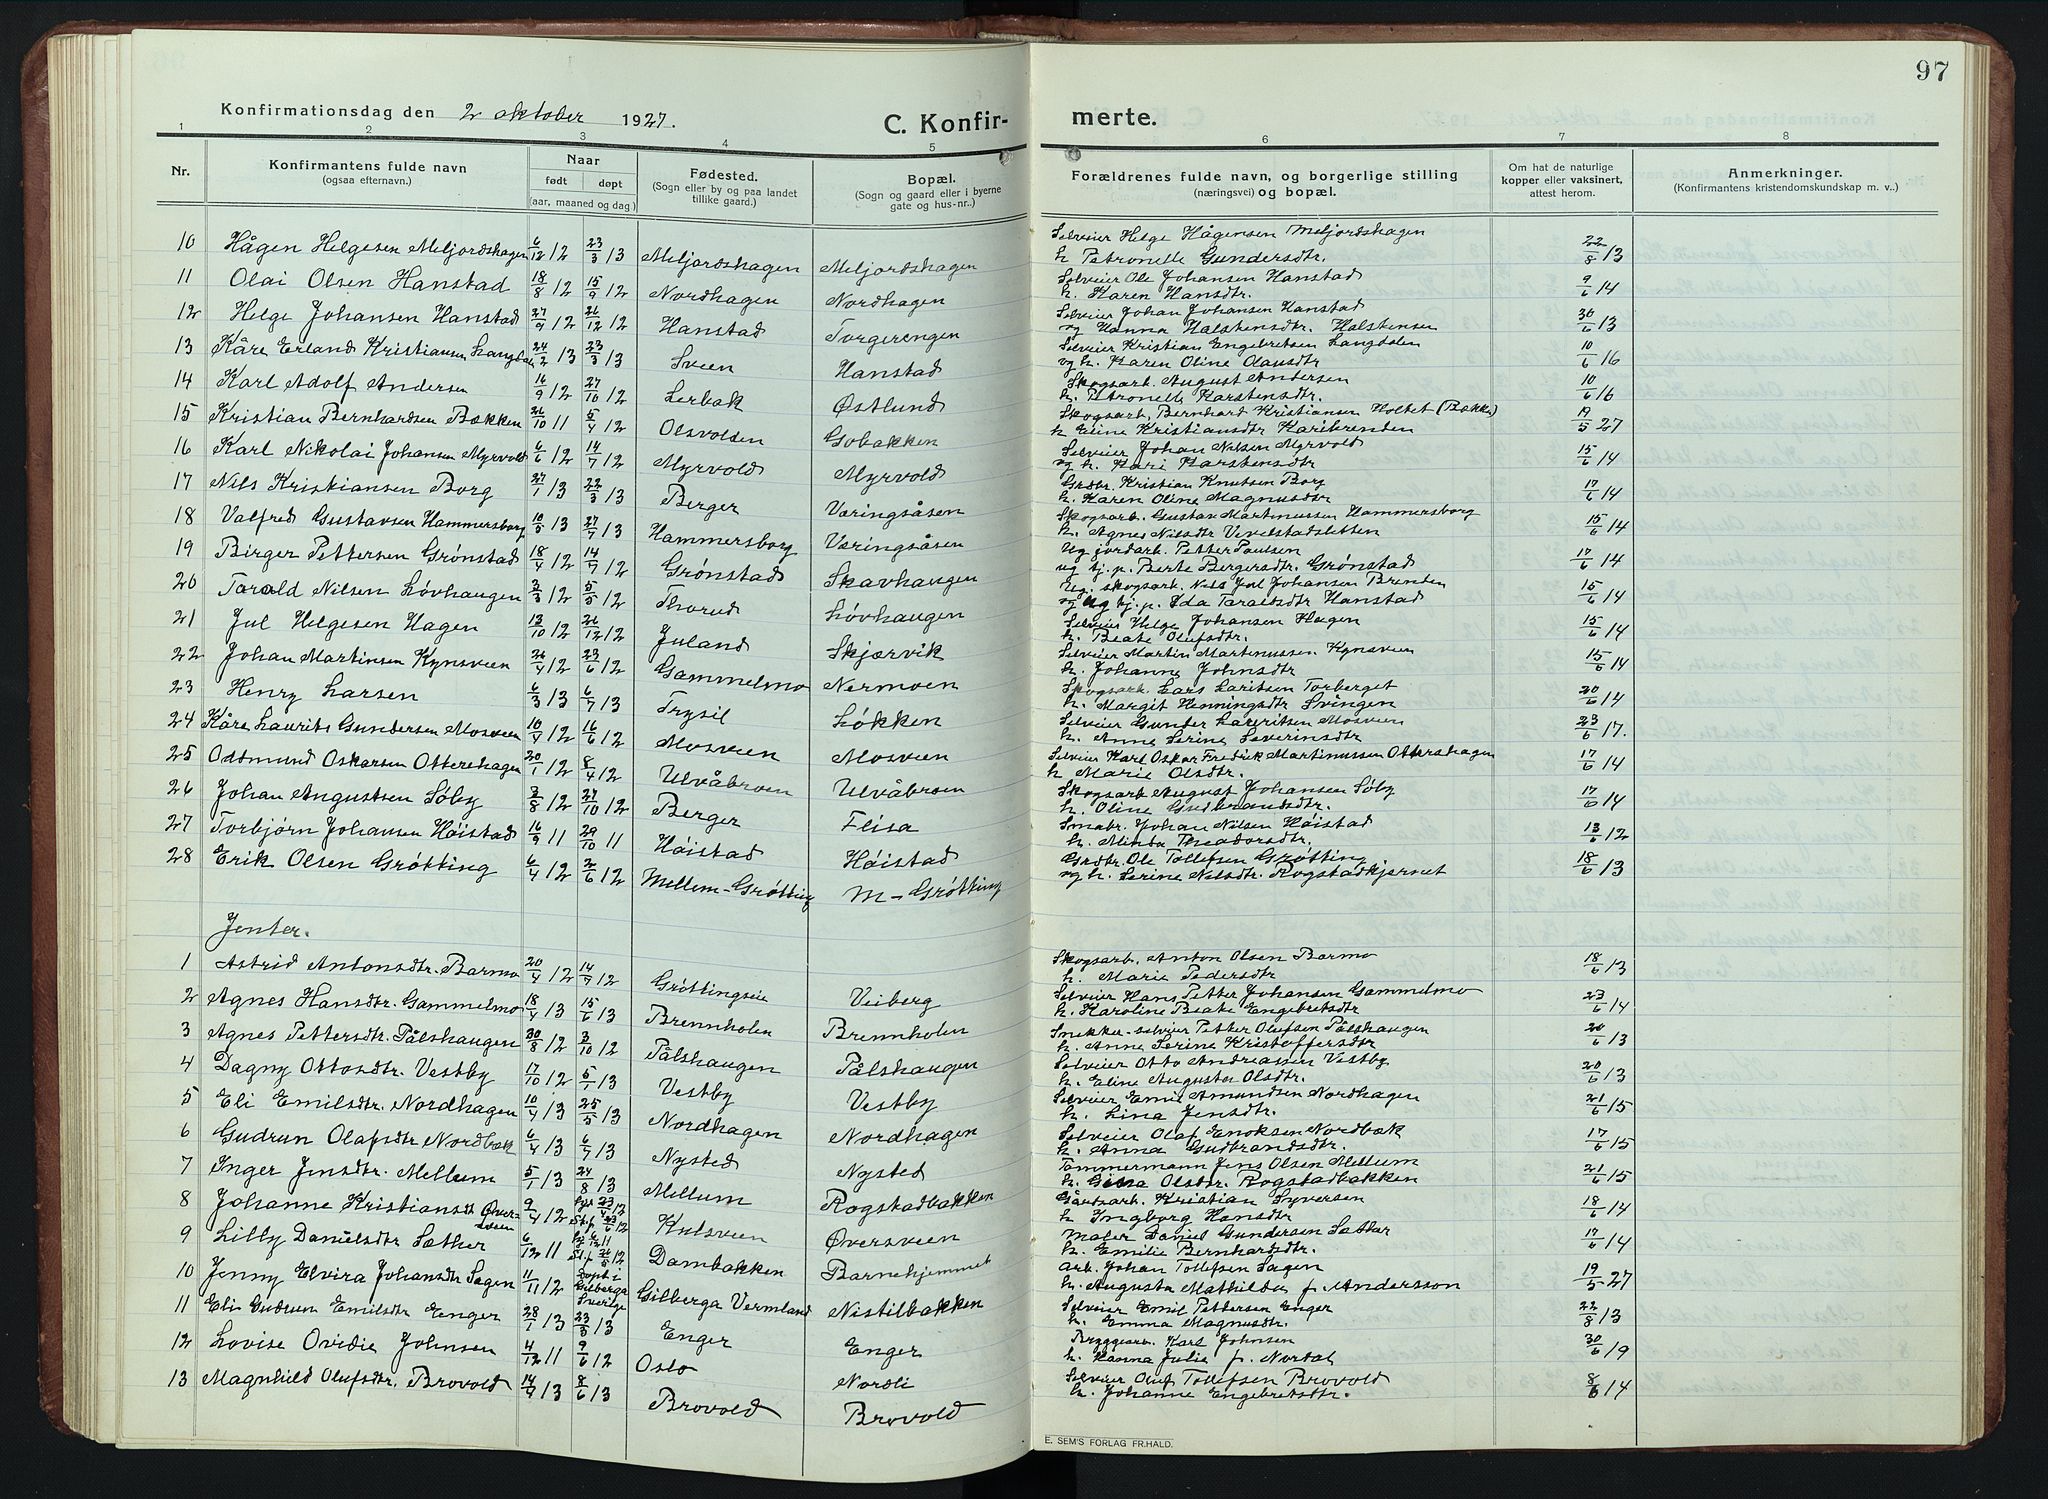 97
Konfirmationsdag den 2 oktober 1927.
C. Konfir- merte.
1 2 3 4 5 6 7 8
Nr.
Konfirmantens fulde navn
(ogsaa efternavn.)
Naar
født døpt
(aar, maaned og dag)
Fødested.
(Sogn eller by og paa landet
tillike gaard.)
Bopæl.
(Sogn og gaard eller i byerne
gate og hus-nr..)
Forældrenes fulde navn, og borgerlige stilling
(næringsvei) og bopæl.
Om hat de naturlige
kopper eller vaksinert,
attest herom.
Anmerkninger.
(Konfirmantens kristendomskundskap m. v..)
10 Hågen Helgesen Meljordshagen 6/12 12 23/3 13 Meljordshagen Meljordshagen Selveier Helge Hågensen Meljordshagen 22/8 13
h. Petronelle Gundersdtr.
11 Olai Olsen Hanstad 18/8 12 15/9 12 Nordhagen Nordhagen Selveier Ole Johansen Hanstad 9/6 14
h. Karen Hansdtr.
12 Helge Johansen Hanstad 27/9 12 26/12 12 Hanstad Torgerengen Selveier Johan Johansen Hanstad 30/6 13
og Hanna Halstensdtr. Halstensen
13 Kåre Erland Kristiansen Langdalen 24/2 13 23/3 13 Sveen Hanstad Selveier Kristian Engebretsen Langdalen 10/6 16
og h. Karen Oline Olausdtr
14 Karl Adolf Andersen 16/9 12 27/10 12 Lerbak Østlund Skogsarb. August Andersen 10/6 16
h. Petronelle Karstensdtr.
15 Kristian Bernhardsen Bækken 26/10 11 5/4 12 Olsvolden Gobakken Skogsarb. Bernhard Kristiansen Holtet (Bækken) /5 27
h Eline Kristiansdtr Karibrenden
16 Karl Nikolai Johansen Myrvold 6/6 12 14/7 12 Myrvold Myrvold Selveier Johan Nilsen Myrvold 15/6 14
og h. Kari Karstensdtr
17 Nils Kristiansen Borg 27/1 13 22/3 13 Berger Væringsåsen Grdbr. Kristian Knutsen Borg 17/6 14
h. Karen Oline Magnusdtr
18 Valfred Gustavsen Hammersborg 10/5 13 27/7 13 Hammersborg Væringsåsen Skogsarb. Gustav Martinussen Hammersborg 15/6 14
h. Agnes Nilsdtr Vevelstadsletten
19 Birger Pettersen Grønstad 18/4 12 14/7 12 Grønstad Skavhaugen Ug jordarb. Petter Paulsen 17/6 14
ug tj. p. Berte Bergersdtr. Grønstad
20 Torald Nilsen Løvhaugen 2/3 12 5/5 12 Thorud Løvhaugen Ug. skogsarb. Nils Jul Johansen Brenden 15/6 14
og ug tj. p. Ida Taraldsdtr Hanstad
21 Jul Helgesen Hagen 13/10 12 26/12 12 Juland Skjærvik Selveier Helge Johansen Hagen 15/6 14
h. Beate Olufsdtr.
22 Johan Martinsen Kynsveen 26/4 12 23/6 12 Gammelmo Nermoen Selveier Martin Martinussen Kynsveen 15/6 14
h. Johanne Johnsdtr
23 Henry Larsen 6/3 13 6/7 13 Trysil Løkken Skogsarb. Lars Laritsen Torberget 20/6 14
h. Margit Henningsdtr Svingen
24 Kåre Laurits Gundersen Mosveen 10/4 12 16/6 12 Mosveen Mosveen Selveier Gunder Lauritsen Mosveen 23/6 17.
h. Anne Serine Severinsdtr
25 Oddmund Oskarsen Ottershagen 20/1 12 8/4 12 Ulvåbroen Ulvåbroen Selveier Karl Oskar Fredrik Martinussen Ottershagen 17/6 14
h Marie Olsdtr.
26 Johan Augustsen Søby 2/8 12 27/10 12 Berger Flisa Skogsarb August Johansen Søby 17/6 14
h. Oline Gudbrandsdtr.
27 Torbjørn Johansen Høistad 16/9 11 29/10 11 Høistad Høistad Smabr. Johan Nilsen Høistad 13/6 12
h. Minda Theodorsdtr.
28 Erik Olsen Grøtting 6/4 12 2/6 12 Mellem-Grøtting M-Grøtting Grdbr. Ole Tollefsen Grøtting 18/6 13
og h. Serine Nilsdtr. Rogstadkjernet
Jenter.
1 Astrid Antonsdtr. Barmo 20/4 12 14/7 12 Grøttingseie Veiberg Skogsarb. Anton Olsen Barmo 18/6 13
h. Marie Pedersdtr
2 Agnes Hansdtr. Gammelmo 18/4 13 15/6 13 Brennholen Brennholen Selveier Hans Petter Johansen Gammelmo 23/6 14
h. Karoline Beate Engebretsdtr
3 Agnes Pettersdtr. Pålshaugen 30/8 12 3/10 12 Pålshaugen Pålshaugen Snekker-selveier Petter Olufsen Pålshaugen 20/6 13
h. Anne Serine Kristoffersdtr
4 Dagny Ottosdtr. Vestby 17/10 12 5/1 13 Vestby Vestby Selveier Otto Andreassen Vestby 20/6 13
h. Eline Augusta Olsdtr.
5 Eli Emilsdtr. Nordhagen 10/4 13 25/5 13 Nordhagen Nordhagen Selveier Emil Amundsen Nordhagen 21/6 15
h. Lina Jensdtr.
6 Gudrun Olafsdtr Nordbæk 6/4 13 6/7 13 Nysted Nysted Selveier Olaf Enoksen Nordbæk 17/6 15
h. Anna Gudbrandsdtr.
7 Inger Jensdtr. Mellum 5/1 13 24/8 13 Mellum Rogstadbakken Tømmermann Jens Olsen Mellum 21/6 15
h. Gina Olsdtr. Rogstadbakken
8 Johanne Kristiansdt Øversveen 9/4 12 hjd 23/4 12 Kulsveen Øversveen Gårdsarb. Kristian Syversen 18/6 14
st.f. 23/6 12 h Ingborg Hansdtr
9 Lilly Danielsdtr Sæther 6/12 11 st.f 26/5 12 Dambakken Barnehjemmet Maler Daniel Gundersen Sæther 17/6 14
h. Emilie Bernhardsdtr.
10 Jenny Elvira Johansdtr Sagen 11/11 12 Døpt i Gilberga Sverige Gilberga Vermland Nistilbakken Arb. Johan Tollefsen Sagen 19/5 27
h. Augusta Mathilda f. Andersson
11 Eli Gudrun Emilsdtr Enger 28/1 13 23/3 13 Enger Enger Selveier Emil Pettersen Enger 22/8 13
h. Emma Magnusdtr.
12 Lovise Ovidie Johnsen 4/12 11 9/6 12 Oslo Nordli Bryggearb. Karl Johnsen 30/6 19
h. Hanna Julie f. Nordal
13 Magnhild Olufsdtr. Brovold 14/4 13 8/6 13 Brovold Brovold Selveier Oluf Tollefsen Brovold 8/6 14
h. Johanne Engebretsdtr.
E. SEM'S FORLAG FR.HALD.